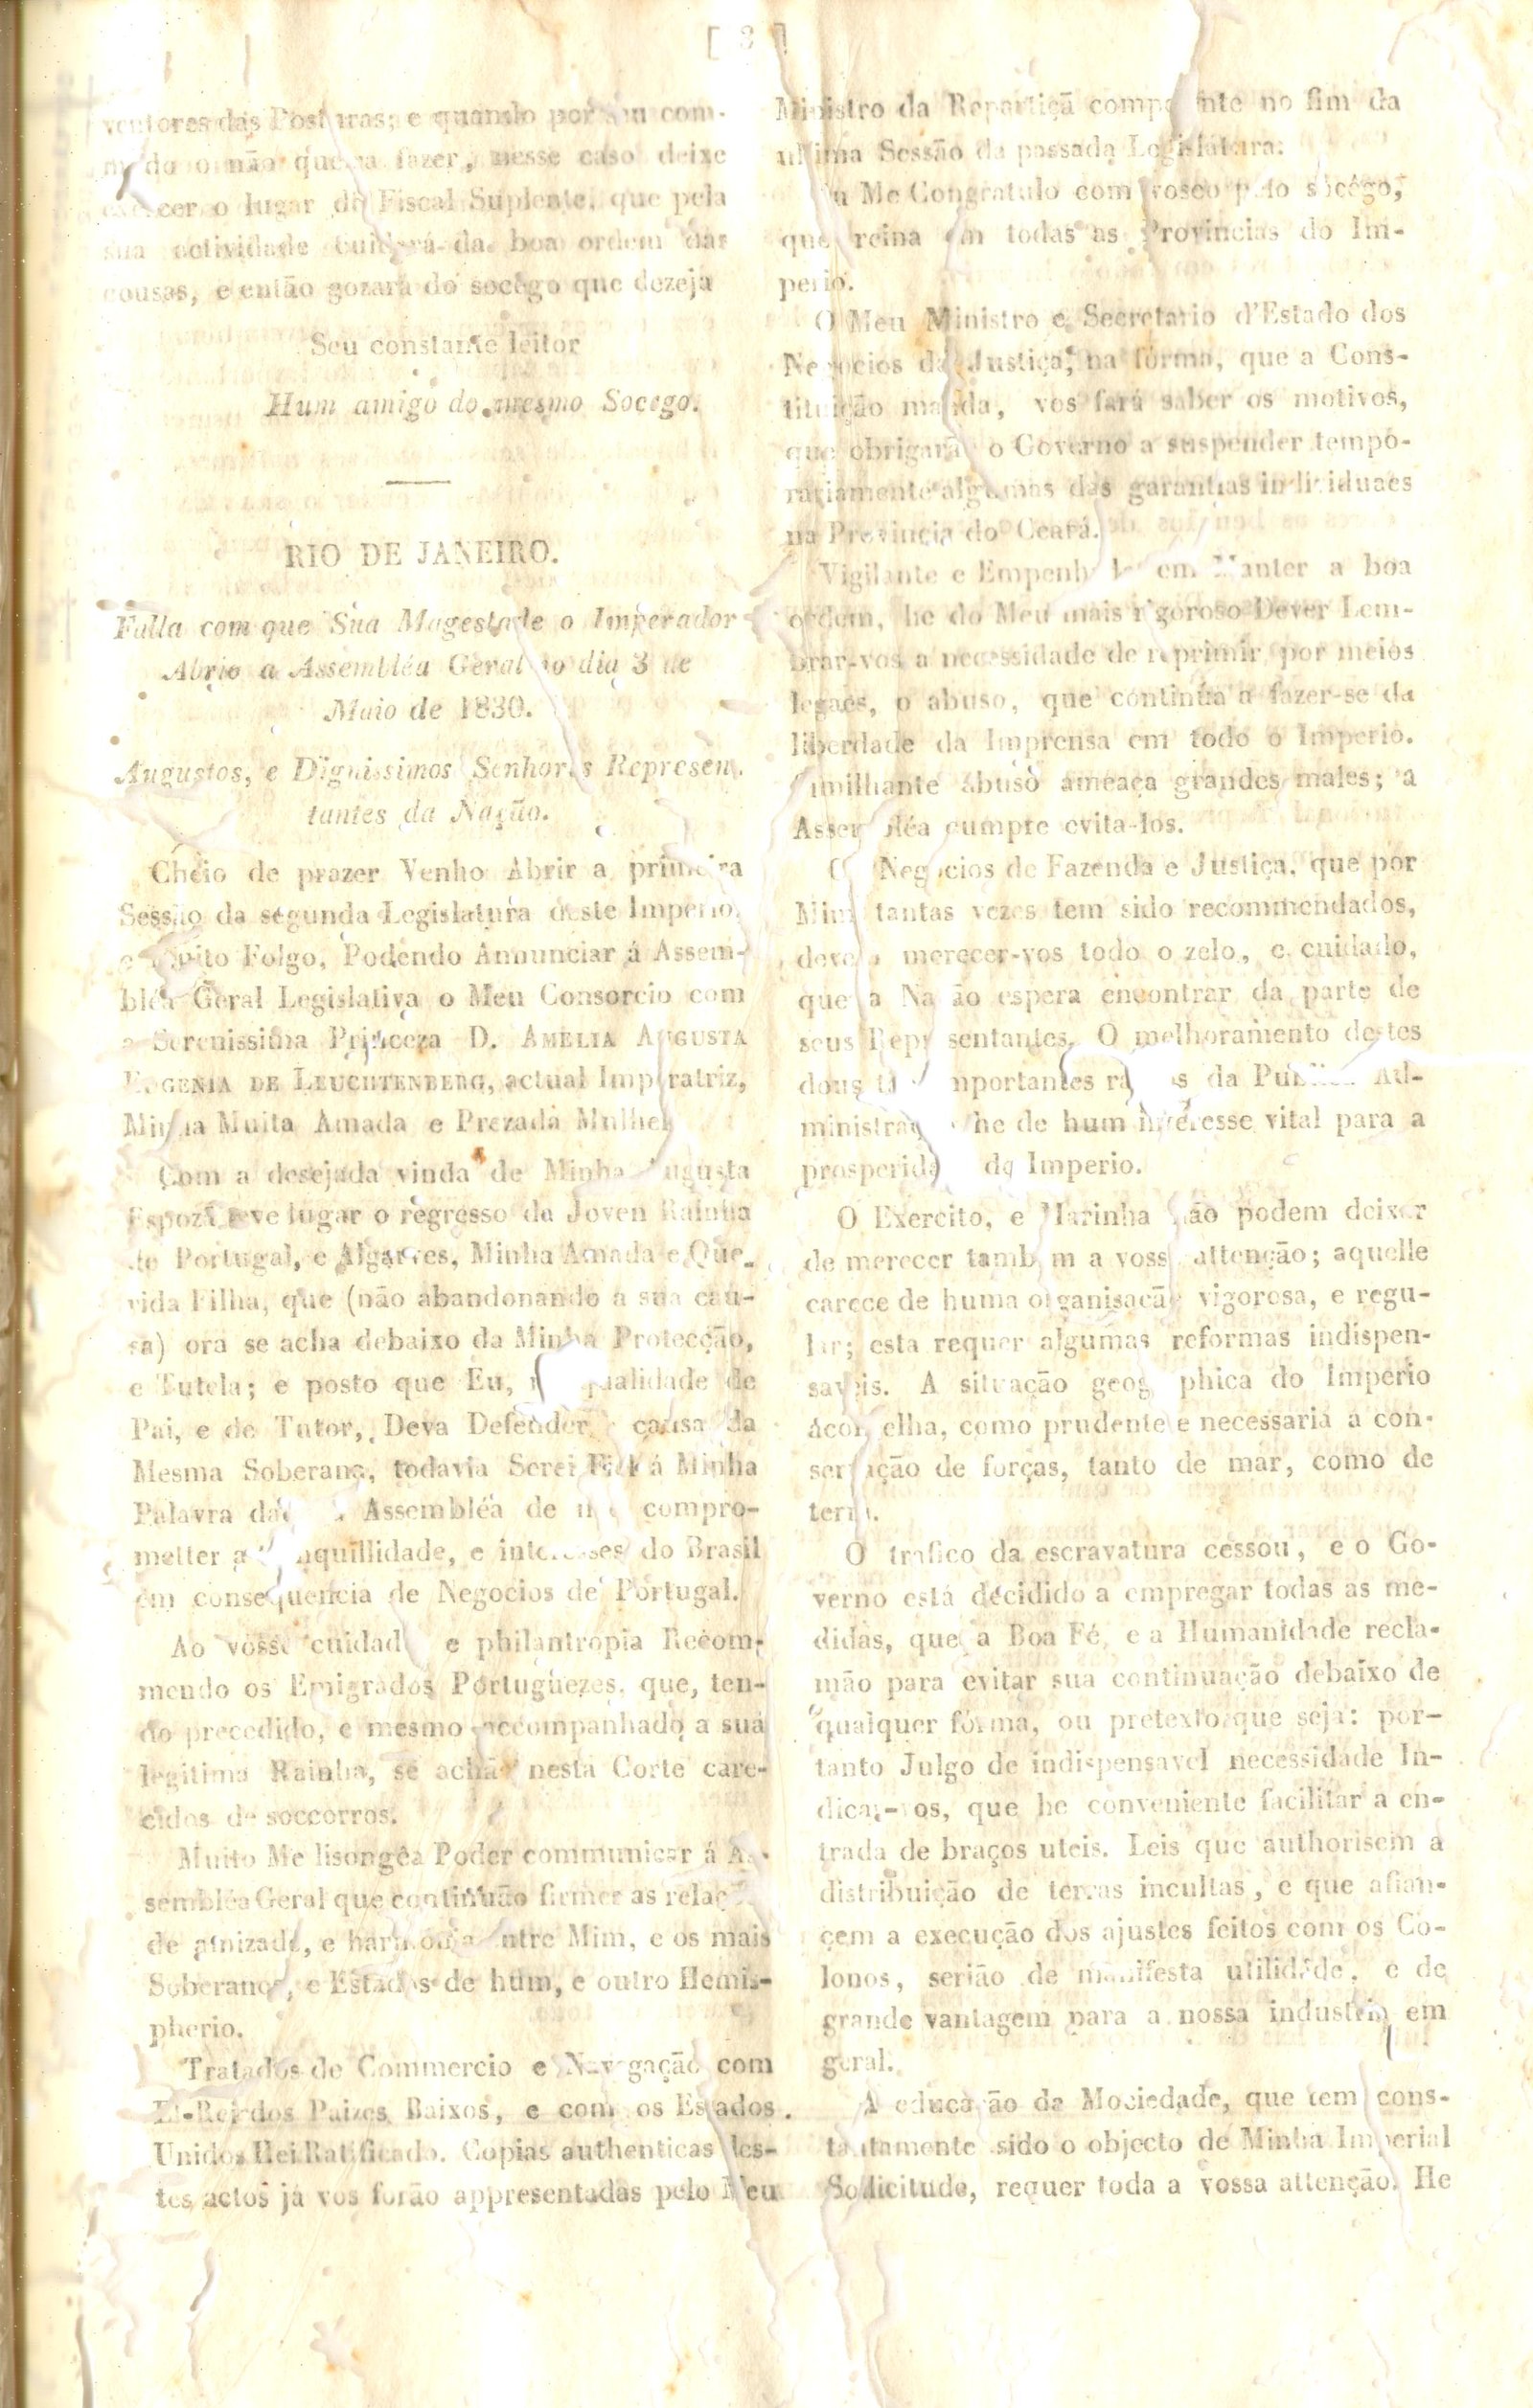 [ 3 ]
ventores das Posturas; e quando por seu com-
modo o não queira fazer, nesse caso deixe
exercer o lugar do Fiscal Suplente, que pela
sua actividade cuidará da boa ordem das
cousas, e então gozará do socego que dezeja
Seu constante leitor
Hum amigo do mesmo Socego.
RIO DE JANEIRO.
Falla com que Sua Magestade o Imperador
Abrio a Assembléa Geral no dia 3 de
Maio de 1830.
Augustos, e Dignissimos Senhores Represen-
tantes da Nação.
Cheio de prazer Venho Abrir a primeira
Sessão da segunda Legislatura deste Imperio,
e Muito Folgo, Podendo Annunciar á Assem-
bléa Geral Legislativa o Meu Consorcio com
a Serenissima Princeza D. AMELIA AUGUSTA
EUGENIA DE LEUCHTENBERG, actual Imperatriz,
Minha Muita Amada e Prezada Mulher
Com a desejada vinda de Minha Augusta
Espoza teve lugar o regresso da Joven Rainha
de Portugal, e Algarves, Minha Amada e Que-
rida Filha, que (não abandonando a sua cau-
sa) ora se acha debaixo da Minha Protecção,
e Tutela; e posto que Eu, na qualidade de
Pai, e de Tutor, Deva Defender a causa da
Mesma Soberana, todavia Serei Fiel á Minha
Palavra dada á Assembléa de não compro-
metter a tranquillidade, e interesses do Brasil
em consequencia de Negocios de Portugal.
Ao vosso cuidado e philantropia Recom-
mendo os Emigrados Portuguezes, que, ten-
do precedido, e mesmo accompanhado a sua
legitima Rainha, se achão nesta Corte care-
cidos de soccorros.
Muito Me lisongêa Poder communicar á As-
sembléa Geral que continuão firmes as relações
de amizade, e harmonia entre Mim, e os mais
Soberanos, e Estados de hum, e outro Hemis-
pherio.
Tratados de Commercio e Navegação com
El-Rei dos Paizes Baixos, e com os Estados
Unidos Hei Ratificado. Copias authenticas des-
tes actos já vos forão appresentadas pelo Meu
Ministro da Repartiçã competente no fim da
ultima Sessão da passada Legislatura.
Eu Me Congratulo comvosco pelo socego,
que reina em todas as Provincias do Im-
perio.
O Meu Ministro e Secretario d'Estado dos
Negocios da Justiça, na fórma, que a Cons-
tituição manda, vos fará saber os motivos,
que obrigarão o Governo a suspender tempo-
rariamente algumas das garantias individuaes
na Provincia do Ceará.
Vigilante e Empenhado em Manter a boa
ordem, he do Meu mais rigoroso Dever Lem-
brar-vos a necessidade de reprimir por meios
legaes, o abuso, que continúa a fazer-se da
liberdade da Imprensa em todo o Imperio.
Similhante abuso ameaça grandes males; a
Assembléa cumpre evita-los.
Os Negocios de Fazenda e Justiça, que por
Mim tantas vezes tem sido recommendados,
devem merecer-vos todo o zelo, e cuidado,
que a Nação espera encontrar da parte de
seus Representantes. O melhoramento destes
dous tão importantes ramos da Publica Ad-
ministração he de hum interesse vital para a
prosperidade do Imperio.
O Exercito, e Marinha não podem deixar
de merecer tambem a vossa attenção; aquelle
carece de huma organisacão vigorosa, e regu-
lar; esta requer algumas reformas indispen-
saveis. A situação geographica do Imperio
aconselha, como prudente e necessaria a con-
servação de forças, tanto de mar, como de
terra.
O trafico da escravatura cessou, e o Go-
verno está decidido a empregar todas as me-
didas, que a Boa Fé, e a Humanidade recla-
mão para evitar sua continuação debaixo de
qualquer fórma, ou pretexto que seja: por-
tanto Julgo de indispensavel necessidade In-
dicar-vos, que he conveniente facilitar a en-
trada de braços uteis. Leis que authorisem a
distribuição de terras incultas, e que afian-
çem a execução dos ajustes feitos com os Co-
lonos, serião de manifesta utilidade, e de
grande vantagem para a nossa industria em
geral.
A educação da Mocidade, que tem cons-
tantamente sido o objecto de Minha Imperial
Sollicitude, requer toda a vossa attenção. He